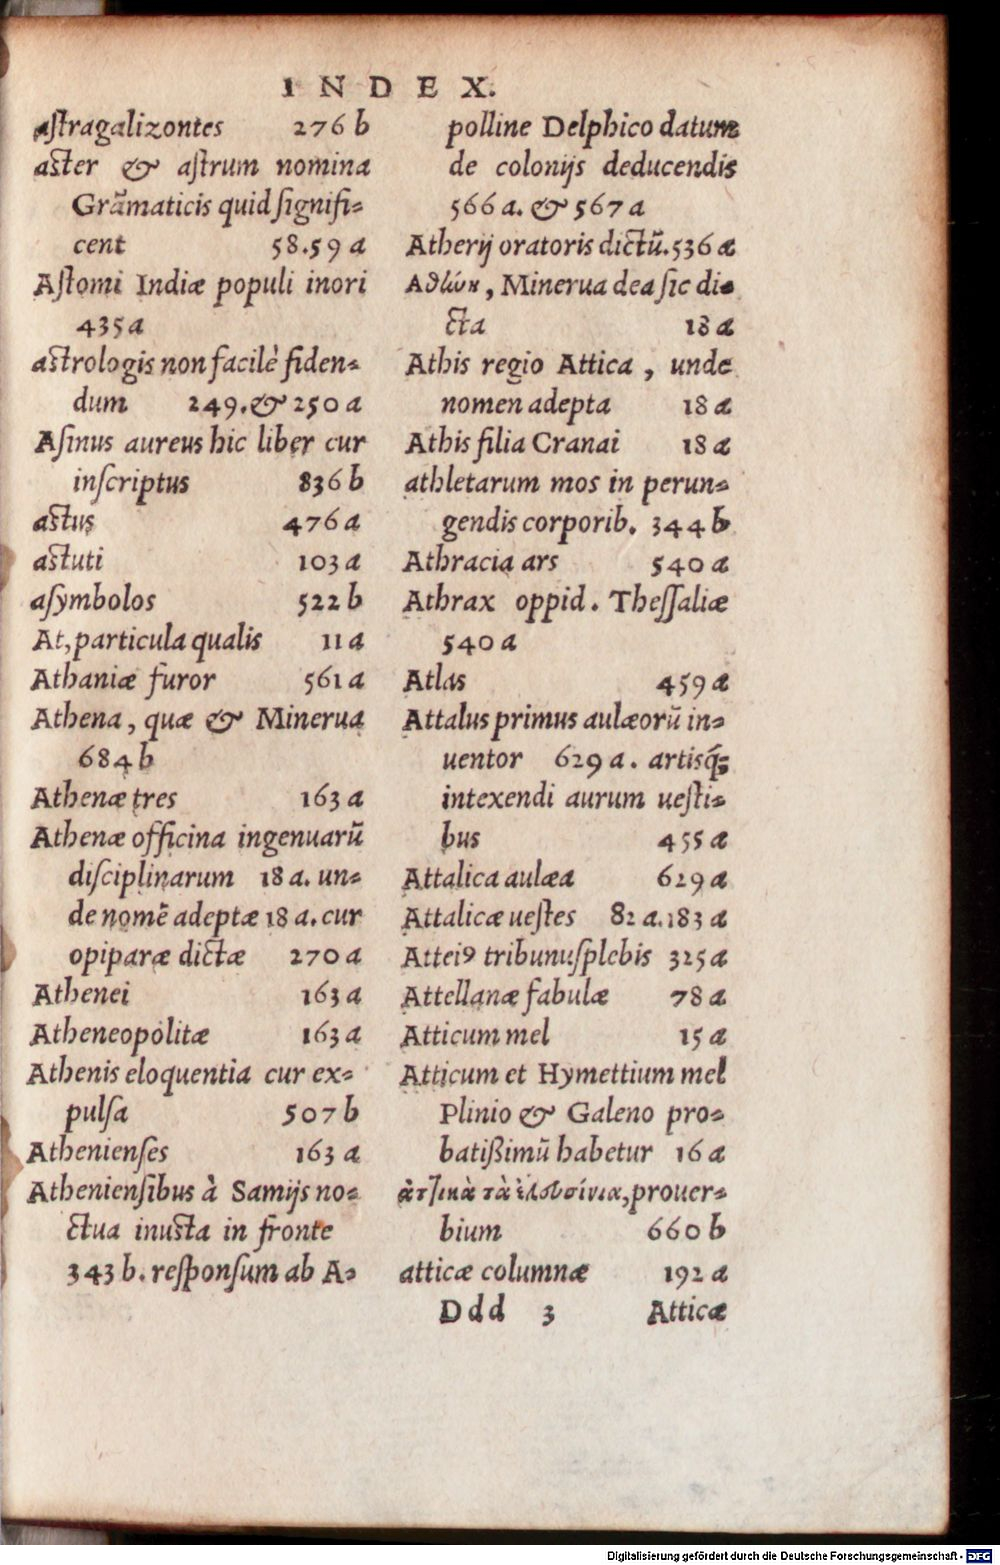 INDEX.
aſtragalizontes 276 b
aſter & aſtrum nomina
Grãmaticis quid ſignifi-
cent 58.59 a
Aſtomi Indiæ populi inori
435 a
aſtrologis non facilè fiden-
dum 249. & 250 a
Aſinus aureus hic liber cur
inſcriptus 836 b
aſtus 476 a
aſtuti 103 a
aſymbolos 522 b
At, particula qualis 11 a
Athaniæ furor 561 a
Athena, quæ & Minerua
684 b
Athenæ tres 163 a
Athenæ officina ingenuarũ
diſciplinarum 18 a. un-
de nomẽ adeptæ 18 a. cur
opiparæ dictæ 270 a
Athenei 163 a
Atheneopolitæ 163 a
Athenis eloquentia cur ex-
pulſa 507 b
Athenienſes 163 a
Athenienſibus à Samijs no-
ctua inuſta in fronte
343 b. reſponſum ab A-
polline Delphico datum
de colonijs deducendis
566 a. & 567 a
Atherij oratoris dictũ. 536 a
Minerua dea ſic di-
cta 18 a
Athis regio Attica, unde
nomen adepta 18 a
Athis filia Cranai 18 a
athletarum mos in perun-
gendis corporib. 344 b
Athracia ars 540 a
Athrax oppid. Theſſaliæ
540 a
Atlas 459 a
Attalus primus aulæorũ in-
uentor 629 a. artisq́;
intexendi aurum ueſti-
bus 455 a
Attalica aulæa 629 a
Attalicæ ueſtes 82 a. 183 a
Atteiꝰ tribunuſplebis 325 a
Attellanæ fabulæ 78 a
Atticum mel 15 a
Atticum et Hymettium mel
Plinio & Galeno pro-
batißimũ habetur 16 a
prouer-
bium 660 b
atticæ columnæ 192 a
Ddd 3 Atticæ
Digitalisierung gefördert durch die Deutsche Forschungsgemeinschaft - DFG